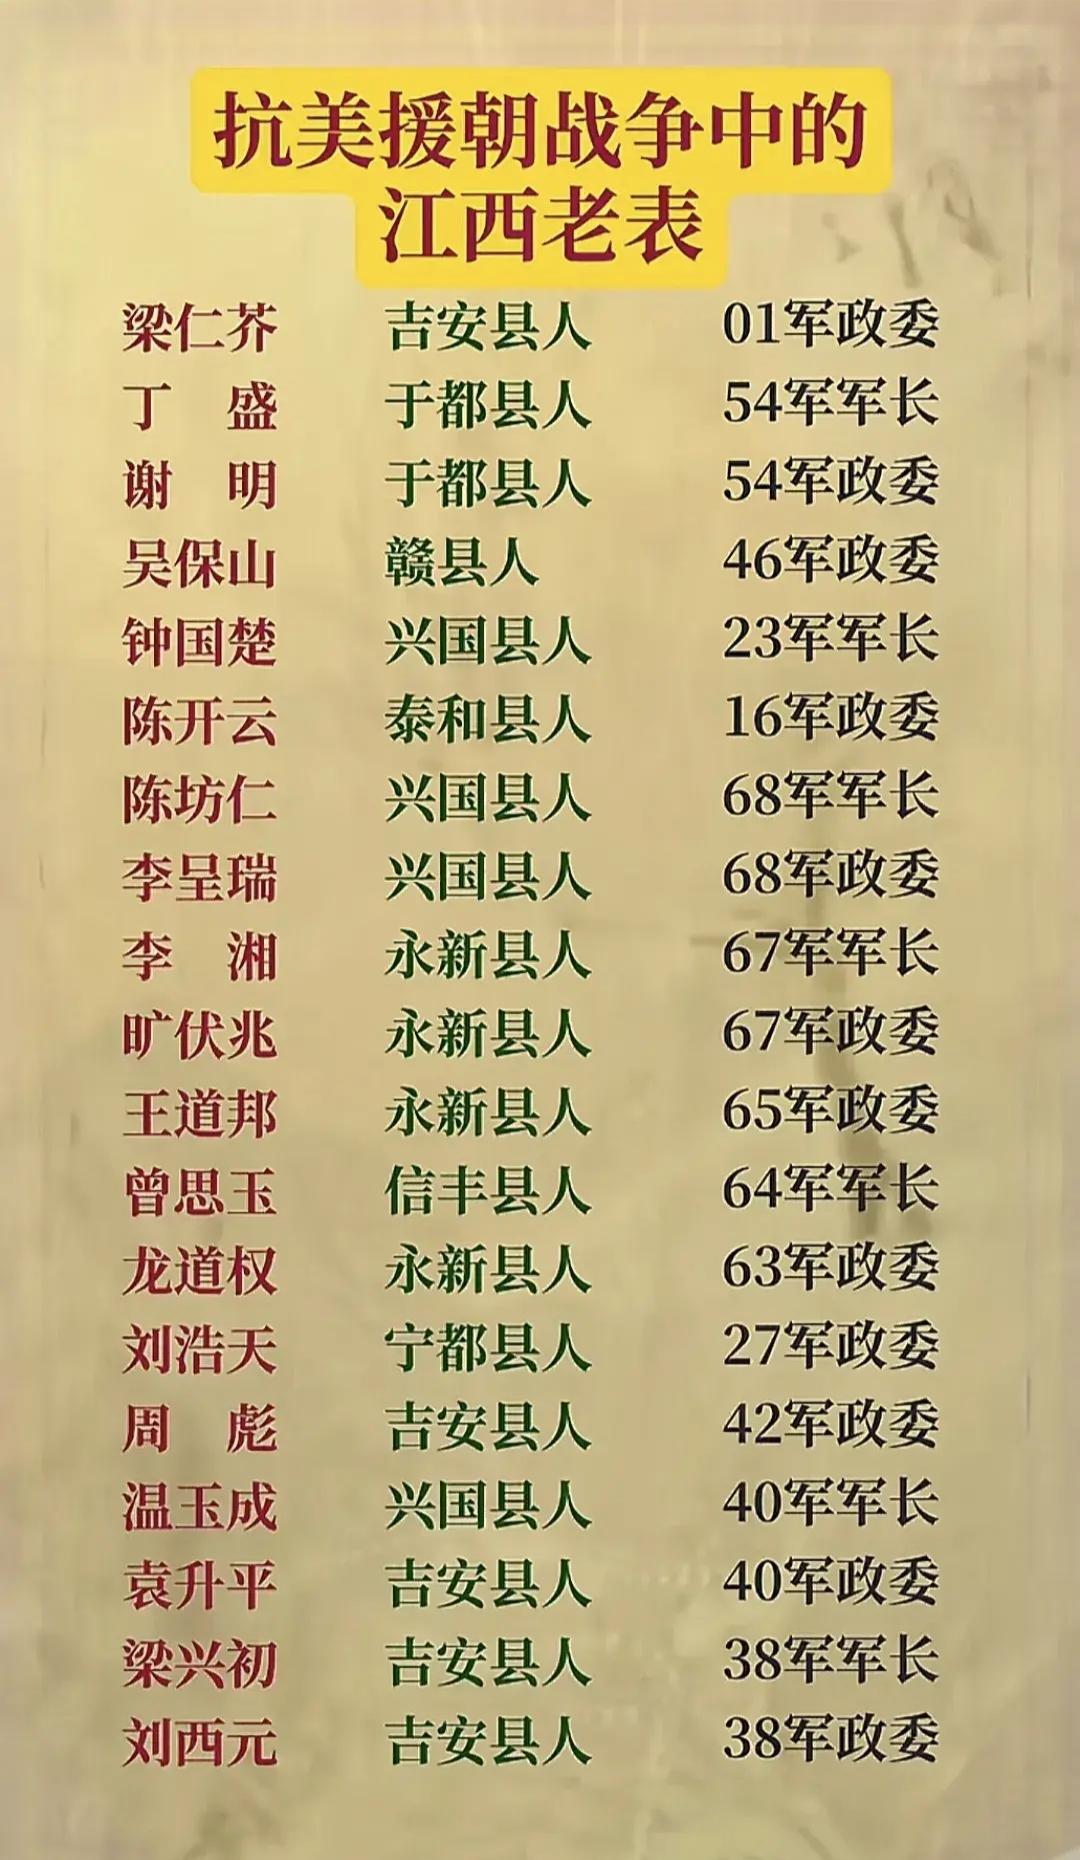 抗美援朝战争中的
江西老表
梁仁芥 吉安县人 01军政委
丁 盛 于都县人 54军军长
谢 明 于都县人 54军政委
吴保山 赣县人 46军政委
钟国楚 兴国县人 23军军长
陈开云 泰和县人 16军政委
陈坊仁 兴国县人 68军军长
李呈瑞 兴国县人 68军政委
李 湘 永新县人 67军军长
旷伏兆 永新县人 67军政委
王道邦 永新县人 65军政委
曾思玉 信丰县人 64军军长
龙道权 永新县人 63军政委
刘浩天 宁都县人 27军政委
周 彪 吉安县人 42军政委
温玉成 兴国县人 40军军长
袁升平 吉安县人 40军政委
梁兴初 吉安县人 38军军长
刘西元 吉安县人 38军政委